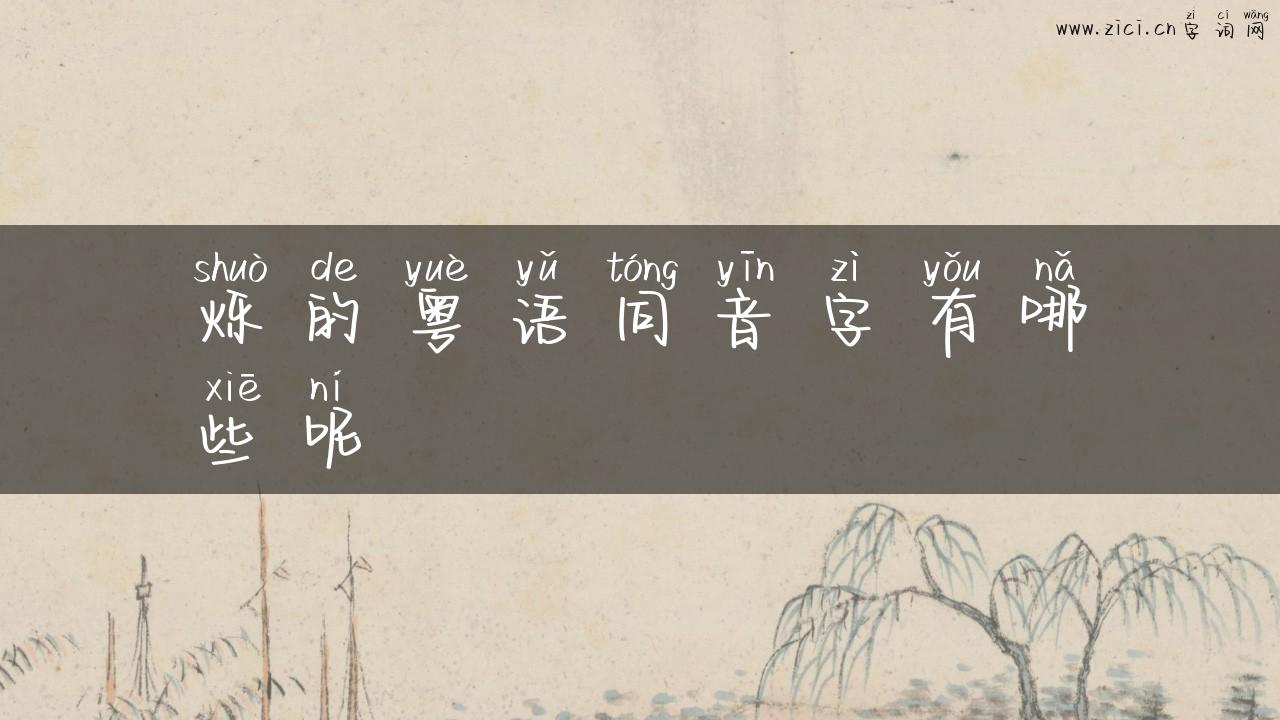 zì cí wǎng
www.zici.cn 字词网
shuò de yuè yǔ tóng yīn zì yǒu nǎ
烁的粤语同音字有哪
xiē ní
些呢